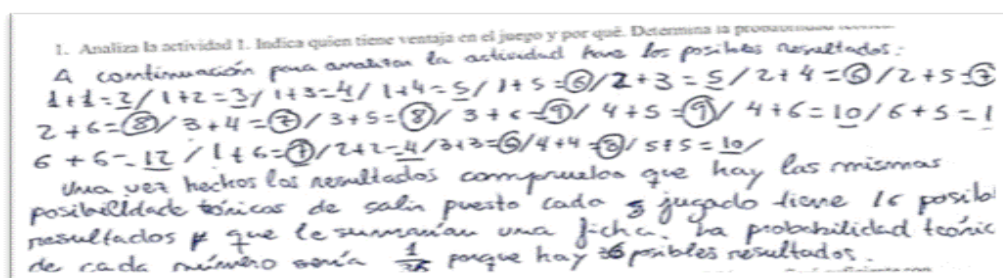 1. Analiza la actividad 1. Indica quien tiene ventaja en el juego y por qué. Determina la
A continuación para analizar la actividad hare los posibles resultados:
1+1=2/ 1+2=3/ 1+3=4/ 1+4=5/ 1+5=6/ 2+3=5/ 2+4=6/ 2+5=7
2+6=8/ 3+4=7/ 3+5=8/ 3+6=9/ 4+5=9/ 4+6=10/ 6+5=1
6+6=12/ 1+6=7/ 2+2=4/ 3+3=6/ 4+4=8/ 5+5=10/
Una vez hechos los resultados comprueba que hay las mismas
posibilidade de salir puesto cada jugado tiene posible
resultados que le sumarían una ficha. La probabilidad teoric
de cada número sería 1/36 porque hay 36 posibles resultados.